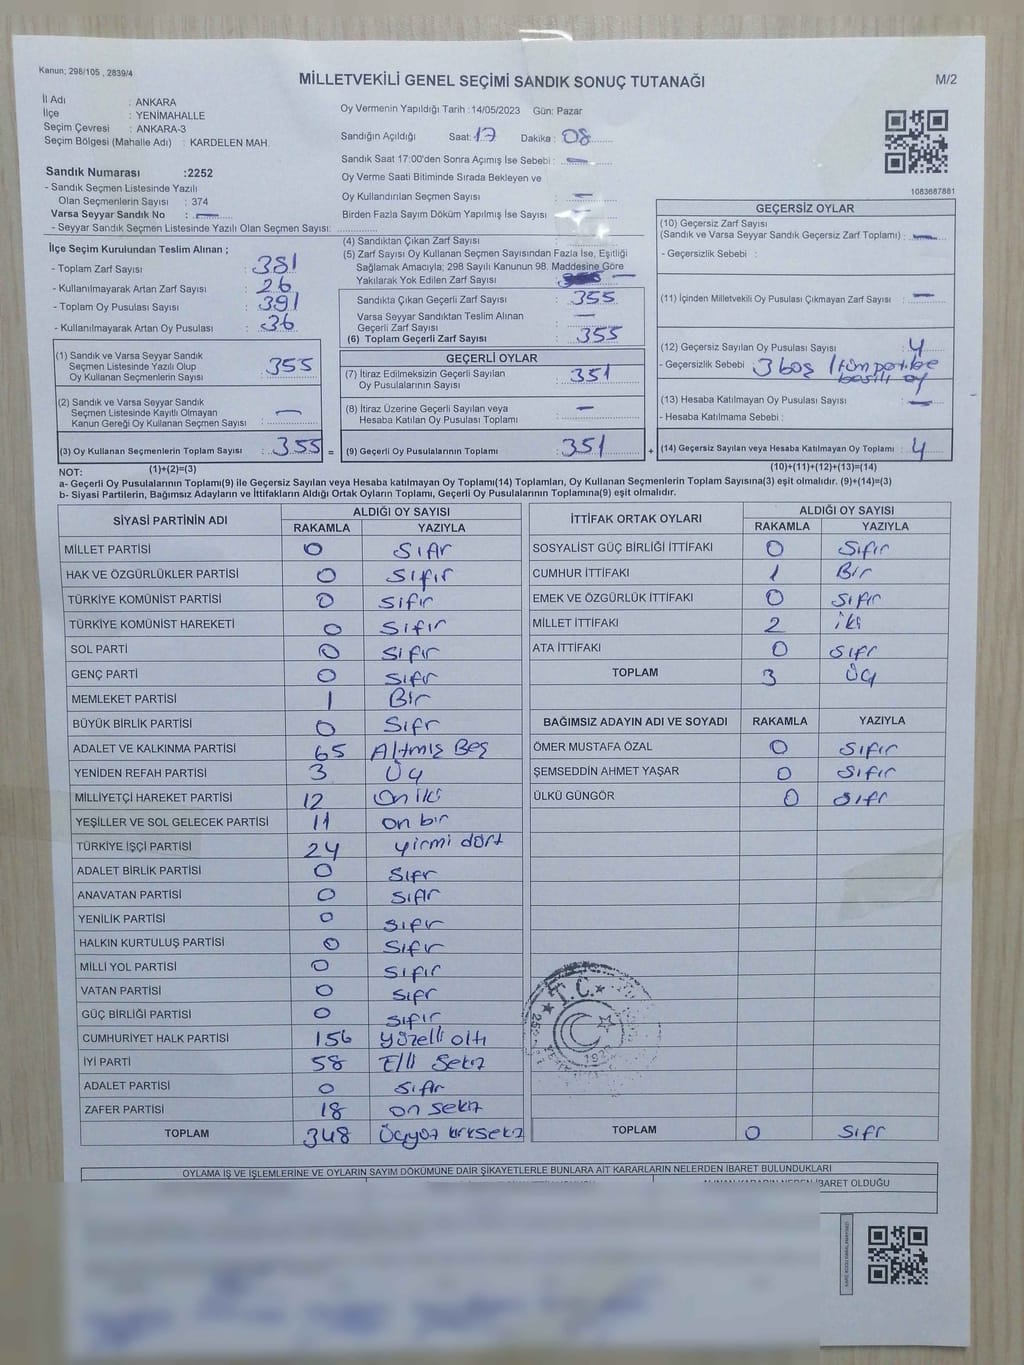 Kanun; 298/105 , 2839/4
MİLLETVEKİLİ GENEL SEÇİMİ SANDIK SONUÇ TUTANAĞI
M/2
İl Adı : ANKARA
İlçe : YENİMAHALLE
Seçim Çevresi : ANKARA-3
Seçim Bölgesi (Mahalle Adı) : KARDELEN MAH.
Sandık Numarası :2252
- Sandık Seçmen Listesinde Yazılı
Olan Seçmenlerin Sayısı : 374
Varsa Seyyar Sandık No : —
- Seyyar Sandık Seçmen Listesinde Yazılı Olan Seçmen Sayısı:
Oy Vermenin Yapıldığı Tarih :14/05/2023 Gün: Pazar
Sandığın Açıldığı Saat: 17 Dakika : 08
Sandık Saat 17:00'den Sonra Açımış İse Sebebi : —
Oy Verme Saati Bitiminde Sırada Bekleyen ve
Oy Kullandırılan Seçmen Sayısı : —
Birden Fazla Sayım Döküm Yapılmış İse Sayısı : —
1083687881
İlçe Seçim Kurulundan Teslim Alınan ;
- Toplam Zarf Sayısı : 381
- Kullanılmayarak Artan Zarf Sayısı : 26
- Toplam Oy Pusulası Sayısı : 391
- Kullanılmayarak Artan Oy Pusulası : 36
(1) Sandık ve Varsa Seyyar Sandık
Seçmen Listesinde Yazılı Olup
Oy Kullanan Seçmenlerin Sayısı : 355
(2) Sandık ve Varsa Seyyar Sandık
Seçmen Listesinde Kayıtlı Olmayan
Kanun Gereği Oy Kullanan Seçmen Sayısı : —
(3) Oy Kullanan Seçmenlerin Toplam Sayısı : 355 =
(4) Sandıktan Çıkan Zarf Sayısı :
(5) Zarf Sayısı Oy Kullanan Seçmen Sayısından Fazla İse, Eşitliği
Sağlamak Amacıyla; 298 Sayılı Kanunun 98. Maddesine Göre
Yakılarak Yok Edilen Zarf Sayısı : —
Sandıkta Çıkan Geçerli Zarf Sayısı : 355
Varsa Seyyar Sandıktan Teslim Alınan
Geçerli Zarf Sayısı : —
(6) Toplam Geçerli Zarf Sayısı : 355
GEÇERLİ OYLAR
(7) İtiraz Edilmeksizin Geçerli Sayılan
Oy Pusulalarının Sayısı : 351
(8) İtiraz Üzerine Geçerli Sayılan veya
Hesaba Katılan Oy Pusulası Toplamı : —
(9) Geçerli Oy Pusulalarının Toplamı : 351 +
GEÇERSİZ OYLAR
(10) Geçersiz Zarf Sayısı
(Sandık ve Varsa Seyyar Sandık Geçersiz Zarf Toplamı) : —
- Geçersizlik Sebebi :
(11) İçinden Milletvekili Oy Pusulası Çıkmayan Zarf Sayısı : —
(12) Geçersiz Sayılan Oy Pusulası Sayısı : 4
- Geçersizlik Sebebi : 3 boş 1 tüm partilere
basılı oy
(13) Hesaba Katılmayan Oy Pusulası Sayısı : —
- Hesaba Katılmama Sebebi :
(14) Geçersiz Sayılan veya Hesaba Katılmayan Oy Toplamı : 4
NOT: (1)+(2)=(3) (10)+(11)+(12)+(13)=(14)
a- Geçerli Oy Pusulalarının Toplamı(9) ile Geçersiz Sayılan veya Hesaba katılmayan Oy Toplamı(14) Toplamları, Oy Kullanan Seçmenlerin Toplam Sayısına(3) eşit olmalıdır. (9)+(14)=(3)
b- Siyasi Partilerin, Bağımsız Adayların ve İttifakların Aldığı Ortak Oyların Toplamı, Geçerli Oy Pusulalarının Toplamına(9) eşit olmalıdır.
SİYASİ PARTİNİN ADI ALDIĞI OY SAYISI
RAKAMLA YAZIYLA
MİLLET PARTİSİ 0 Sıfır
HAK VE ÖZGÜRLÜKLER PARTİSİ 0 Sıfır
TÜRKİYE KOMÜNİST PARTİSİ 0 Sıfır
TÜRKİYE KOMÜNİST HAREKETİ 0 Sıfır
SOL PARTİ 0 Sıfır
GENÇ PARTİ 0 Sıfır
MEMLEKET PARTİSİ 1 Bir
BÜYÜK BİRLİK PARTİSİ 0 Sıfır
ADALET VE KALKINMA PARTİSİ 65 Altmış Beş
YENİDEN REFAH PARTİSİ 3 Üç
MİLLİYETÇİ HAREKET PARTİSİ 12 On iki
YEŞİLLER VE SOL GELECEK PARTİSİ 11 on bir
TÜRKİYE İŞÇİ PARTİSİ 24 yirmi dört
ADALET BİRLİK PARTİSİ 0 Sıfır
ANAVATAN PARTİSİ 0 Sıfır
YENİLİK PARTİSİ 0 Sıfır
HALKIN KURTULUŞ PARTİSİ 0 Sıfır
MİLLİ YOL PARTİSİ 0 Sıfır
VATAN PARTİSİ 0 Sıfır
GÜÇ BİRLİĞİ PARTİSİ 0 Sıfır
CUMHURİYET HALK PARTİSİ 156 yüzelli altı
İYİ PARTİ 58 Elli Sekiz
ADALET PARTİSİ 0 Sıfır
ZAFER PARTİSİ 18 on sekiz
TOPLAM 348 Üçyüz kırksekiz
İTTİFAK ORTAK OYLARI ALDIĞI OY SAYISI
RAKAMLA YAZIYLA
SOSYALİST GÜÇ BİRLİĞİ İTTİFAKI 0 Sıfır
CUMHUR İTTİFAKI 1 Bir
EMEK VE ÖZGÜRLÜK İTTİFAKI 0 Sıfır
MİLLET İTTİFAKI 2 iki
ATA İTTİFAKI 0 Sıfır
TOPLAM 3 Üç
BAĞIMSIZ ADAYIN ADI VE SOYADI RAKAMLA YAZIYLA
ÖMER MUSTAFA ÖZAL 0 Sıfır
ŞEMSEDDİN AHMET YAŞAR 0 Sıfır
ÜLKÜ GÜNGÖR 0 Sıfır
T.C.
TOPLAM 0 Sıfır
OYLAMA İŞ VE İŞLEMLERİNE VE OYLARIN SAYIM DÖKÜMÜNE DAİR ŞİKAYETLERLE BUNLARA AİT KARARLARIN NELERDEN İBARET BULUNDUKLARI
İBARET OLDUĞU